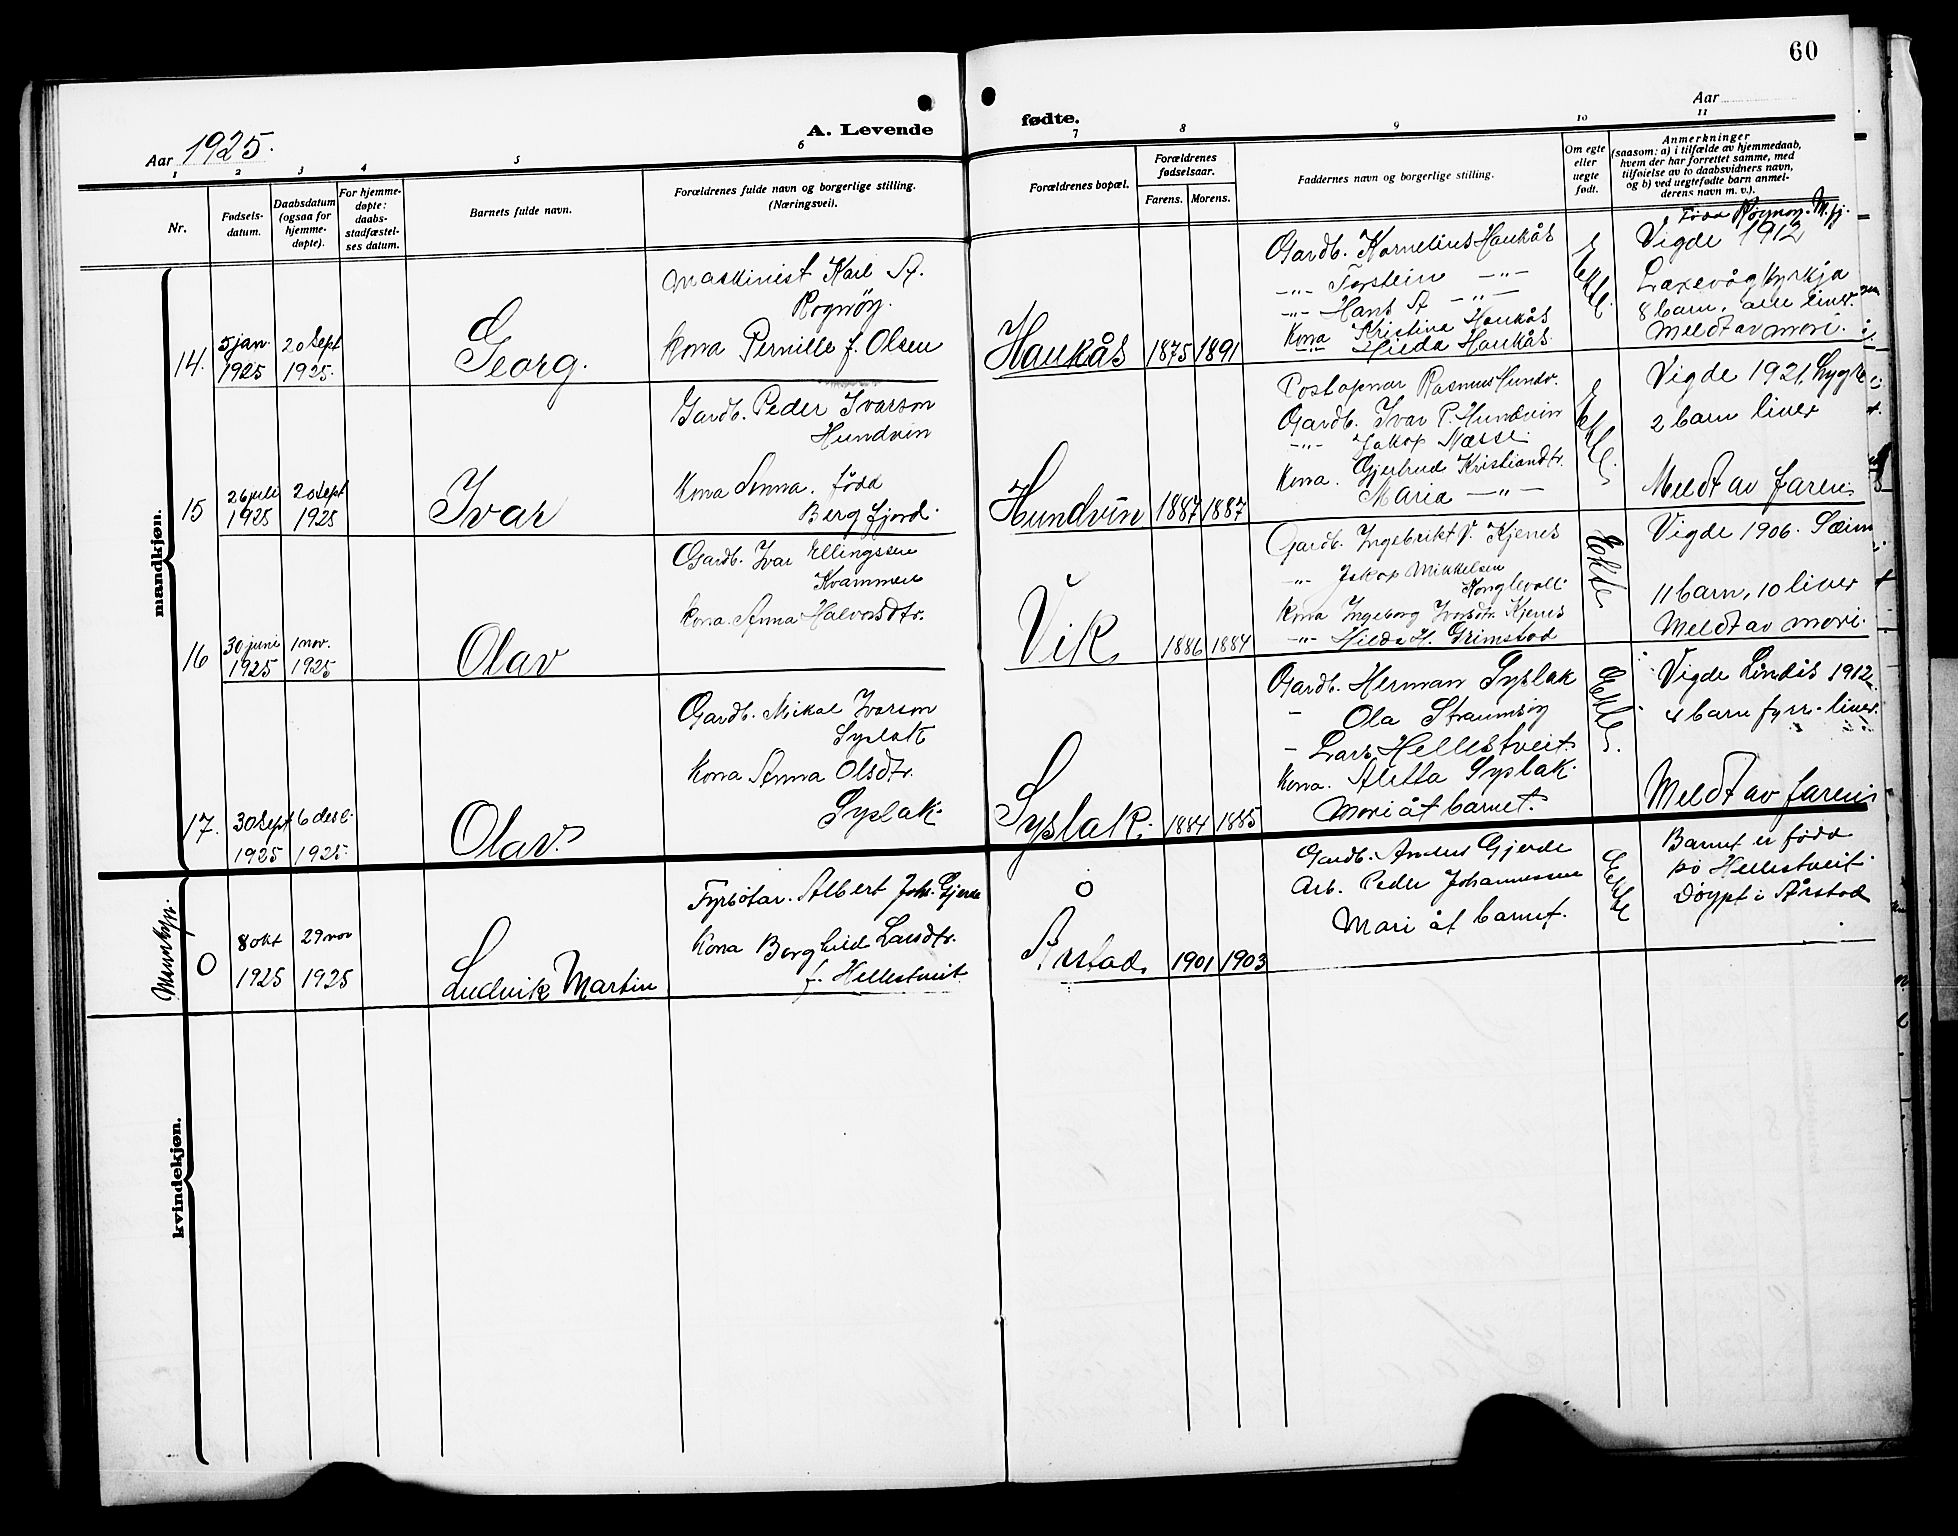 60
Aar 1925.
A. Levende
fødte.
Aar
1
2
3
4
5
6
7
8
9
10
11
Nr.
Fødsels-
datum.
Daabsdatum
(ogsaa for
hjemme-
døpte).
For hjemme-
døpte:
daabs-
stadfæstel-
ses datum.
Barnets fulde navn.
Forældrenes fulde navn og borgerlige stilling.
(Næringsvei).
Forældrenes bopæl.
Forældrenes
fødselsaar.
Farens.
Morens.
Faddernes navn og borgerlige stilling.
Om egte
eller
uegte
født.
Anmerkninger
(saasom: a) i tilfælde av hjemmedaab,
hvem der har forrettet samme, med
tilføielse av to daabsvidners navn,
og b) ved uegtefødte barn anmel-
derens navn m. v.).
mandkjøn.
14.
5 jan.
1925
20 sept
1925.
Georg.
Maskinist Karl A.
Rognöy.
Kona Pernille f. Olsen
Haukås
1875
1891
Gardb. Kornelius Haukås
-"- Torstein -"-
-"- Hans A -"-
Kona Kristine Haukås
-"- Hilda Haukås.
Ekte.
Född Rognöy. M.fj.
Vigde 1912
Laxevåg Kyrkja
8 barn, alle liver.
Meldt av mori.
15
26 juli
1925
20 sept
1925
Ivar
Gardb. Peder Ivarson
Hundvin
Kona Anna. född
Bergfjord.
Hundvin
1887
1887
Postopnar Rasmus Hundv.
Gardb. Ivar P. Hundvin
-"- Jakop Næsse
Kona. Gjertrud Kristiandtr.
Maria -"-
Ekte.
Vigde 1921. Lygre
2 barn liver
Meldt av faren.
16
30 juni
1925
1 nov.
1925
Olav
Gardb. Ivar Ellingssen
Kvammen
Kona. Anna Halvorsdtr.
Vik
1886
1884
Gardb. Ingebrikt V. Kjenes
-"- Jakop Mikkelsen
Konglevoll
Kona Ingeborg Ivarsdtr. Kjenes
-"- Hilda H. Grimstad
Ekte
Vigde 1906. Sæim
11 barn, 10 liver
Meldt av mori.
17.
30 Sept
1925
6 des.
1925.
Olav.
Gardb. Mikal Ivarson
Syslak
Kona Anna Olsdtr.
Syslak.
Syslak.
1884
1885
Gardb. Herman Syslak
- Ola Straumsöy
- Lars Hellestveit.
Kona. Aletta Syslak.
Mori åt barnet.
Ekte.
Vigde Lindås 1912
4 barn fyrr. liver.
Meldt av faren
Mannkjn.
0
8 okt
1925
29 nov
1925
Ludvik Martin
Fyrbötar. Albert Joh. Gjerde
Kona Borghild Larsdtr.
f. Hellestveit
Årstad.
1901
1903
Gardb. Anders Gjerde
Arb. Peder Johannessen
Mori åt barnet.
Ekte
Barnet er född
på Hellestveit.
Döypt i Årstad
kvindekjøn.